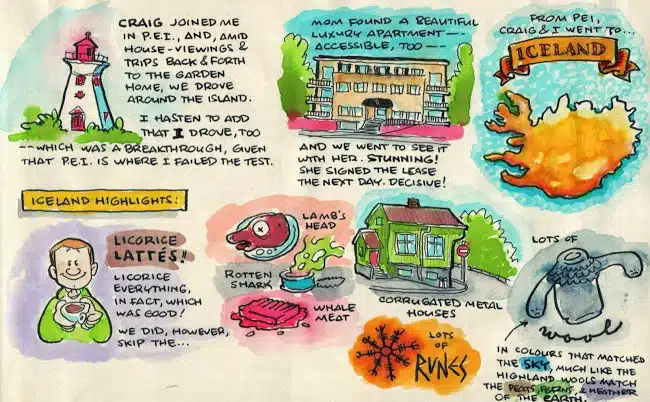 CRAIG JOINED ME
IN P.E.I., AND, AMID
HOUSE-VIEWINGS &
TRIPS BACK & FORTH
TO THE GARDEN
HOME, WE DROVE
AROUND THE ISLAND.
I HASTEN TO ADD
THAT I DROVE, TOO
--WHICH WAS A BREAKTHROUGH, GIVEN
THAT P.E.I. IS WHERE I FAILED THE TEST.
MOM FOUND A BEAUTIFUL
LUXURY APARTMENT--
ACCESSIBLE, TOO--
AND WE WENT TO SEE IT
WITH HER. STUNNING!
SHE SIGNED THE LEASE
THE NEXT DAY. DECISIVE!
FROM PEI,
CRAIG & I WENT TO...
ICELAND
ICELAND HIGHLIGHTS:
LICORICE
LATTÉS!
LICORICE
EVERYTHING,
IN FACT, WHICH
WAS GOOD!
WE DID, HOWEVER,
SKIP THE...
LAMB'S
HEAD
ROTTEN
SHARK
WHALE
MEAT
CORRUGATED METAL
HOUSES
LOTS
OF
RUNES
LOTS OF
wool
IN COLOURS THAT MATCHED
THE SKY, MUCH LIKE THE
HIGHLAND WOOLS MATCH
THE PEATS, FERNS, & HEATHER
OF THE EARTH.